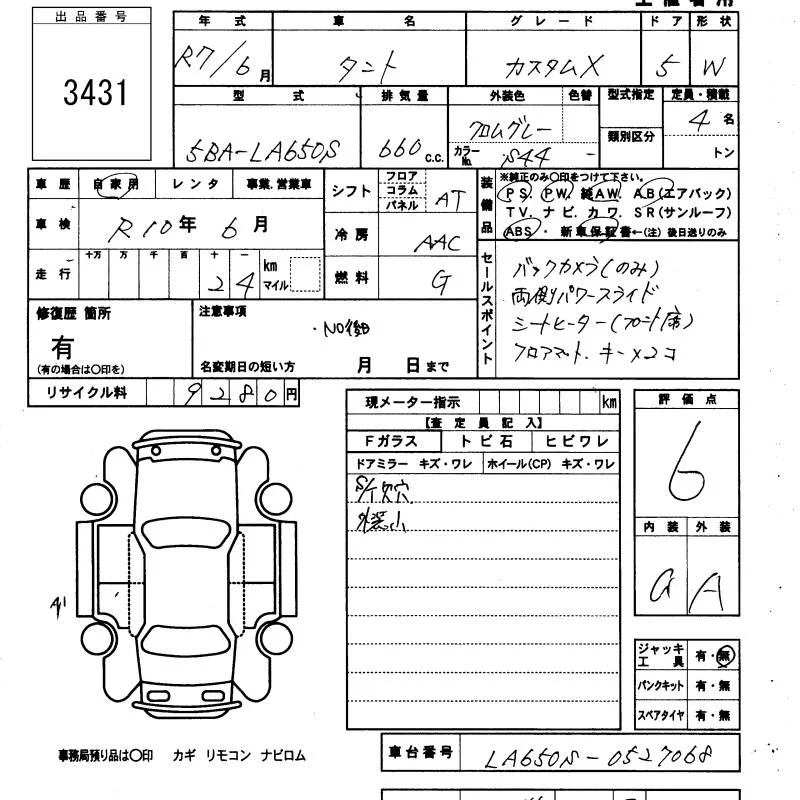 出品番号
3431
年式 車名 グレード ドア 形状
R7/6月 タント カスタムX 5 W
型式 排気量 外装色 色替 型式指定 定員・積載
類別区分
5BA-LA650S 660c.c. クロムグレー カラーNo. S44 4名
トン
車歴 自家用 レンタ 事業.営業車
シフト フロア コラム パネル AT
車検 R10年 6月
冷房 AAC
走行 十万 万 千 百 十 一 km マイル
24
燃料 G
装備品 ※純正のみ〇印をつけて下さい。
PS. PW. 純AW. AB(エアバック)
TV. ナビ. カワ. SR(サンルーフ)
ABS・ 新車保証書←(注)後日送りのみ
セールスポイント
バックカメラ(のみ)
両側パワースライド
シートヒーター(フロント席)
フロアマット.キー×2コ
修復歴 箇所
有
(有の場合は〇印を)
注意事項
・NO後日
名変期日の短い方 月 日まで
リサイクル料 9280円
現メーター指示 km
【査定員記入】
Fガラス トビ石 ヒビワレ
ドアミラー キズ・ワレ ホイール(CP) キズ・ワレ
S/T欠穴
小
評価点
6
内装 外装
G A
A1
ジャッキ工具 有・無
パンクキット 有・無
スペアタイヤ 有・無
事務局預り品は〇印 カギ リモコン ナビロム
車台番号 LA650S-0527068